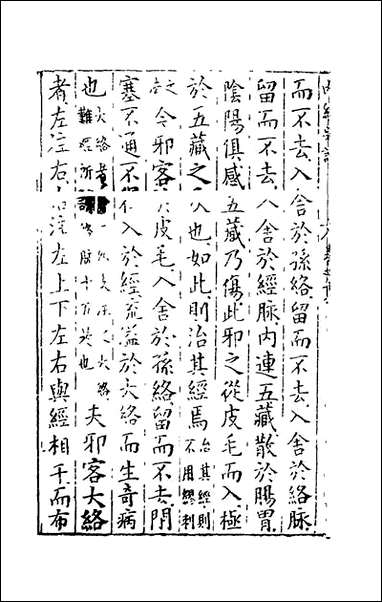 而不去入舍於孫絡留而不去入舍於絡脉
留而不去入舍於經脉内連五藏散於腸胃
陰陽俱感五藏乃傷此邪之從皮毛而入極
於五藏之次也如此則治其經焉治其經則不用繆刺
今邪客皮毛入舍於孫絡留而不去閉
塞不通不入於經流溢於大絡而生奇病
也大絡夫邪客大絡
者左注右右注左上下左右與經相干而布